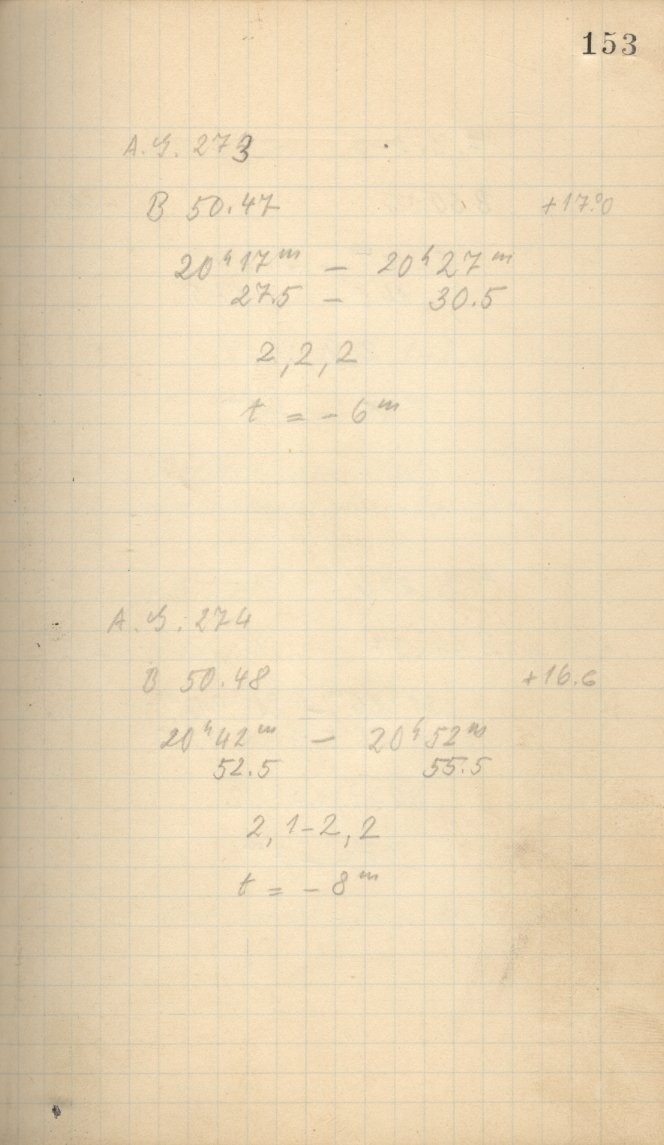 153
A.G. 273
B 50.47 +17.°0
20ʰ17ᵐ — 20ʰ27ᵐ
27.5 — 30.5
2, 2, 2
t = -6ᵐ
A.G. 274
B 50.48 +16.6
20ʰ42ᵐ — 20ʰ52ᵐ
52.5 55.5
2, 1-2, 2
t = -8ᵐ